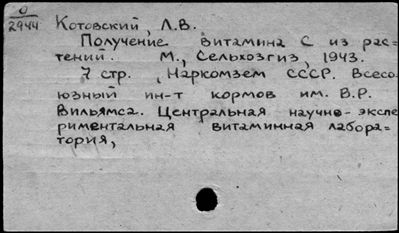 О
2944 Котовский, Л.В.
Получение витамина С из рас=
тений. М., Сельхозгиз, 1943.
7 стр. , Наркомзем СССР. Всесо=
юзный ин-т кормов им. В.Р.
Вильямса. Центральная научно-экспе
риментальная витаминная лабора=
тория,